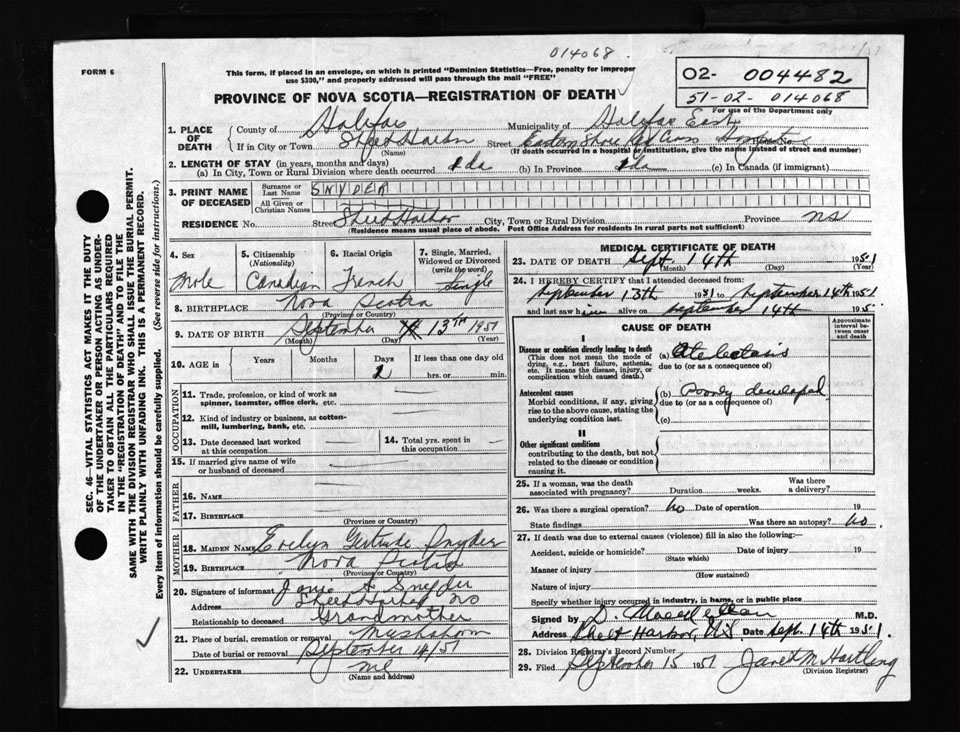 014068
FORM 6
This form, if placed in an envelope, on which is printed "Dominion Statistics—Free, penalty for improper
use $300," and properly addressed will pass through the mail "FREE"
O2- 004482
51-02-014068
For use of the Department only
PROVINCE OF NOVA SCOTIA—REGISTRATION OF DEATH
1. PLACE OF DEATH
County of Halifax Municipality of Halifax East
If in City or Town Sheet Harbor Street Eastern Shore Hospital
(Name) (If death occurred in a hospital or institution, give the name instead of street and number)
2. LENGTH OF STAY (in years, months and days)
(a) In City, Town or Rural Division where death occurred 1 da (b) In Province 1 da (c) In Canada (if immigrant)
3. PRINT NAME OF DECEASED
Surname or Last Name SNYDER
All Given or Christian Names
RESIDENCE No. Street Sheet Harbor City, Town or Rural Division Province NS
(Residence means usual place of abode. Post Office Address for residents in rural parts not sufficient)
4. Sex
Male
5. Citizenship (Nationality)
Canadian
6. Racial Origin
French
7. Single, Married, Widowed or Divorced (write the word)
Single
8. BIRTHPLACE Nova Scotia
(Province or Country)
9. DATE OF BIRTH September 13TH 1951
(Month) (Day) (Year)
10. AGE in
Years Months Days If less than one day old
2 hrs. or min.
OCCUPATION
11. Trade, profession, or kind of work as
spinner, teamster, office clerk, etc.
12. Kind of industry or business, as cotton-
mill, lumbering, bank, etc.
13. Date deceased last worked
at this occupation
14. Total yrs. spent in
this occupation
15. If married give name of wife
or husband of deceased
FATHER
16. NAME
17. BIRTHPLACE
(Province or Country)
MOTHER
18. MAIDEN NAME Evelyn Gertrude Snyder
19. BIRTHPLACE Nova Scotia
(Province or Country)
20. Signature of informant A Snyder
Address Sheet Harbor NS
Relationship to deceased Grandmother
21. Place of burial, cremation or removal Mushaboom
Date of burial or removal September 14/51
22. UNDERTAKER
(Name and address)
MEDICAL CERTIFICATE OF DEATH
23. DATE OF DEATH Sept. 14th 1951
(Month) (Day) (Year)
24. I HEREBY CERTIFY that I attended deceased from:
September 13th 1951 to September 14th 1951
and last saw him alive on September 14th 195
CAUSE OF DEATH
Approximate interval between onset and death
I
Disease or condition directly leading to death
(This does not mean the mode of
dying, e.g., heart failure, asthenia,
etc. It means the disease, injury, or
complication which caused death.)
(a) Atelectasis
due to (or as a consequence of)
Antecedent causes
Morbid conditions, if any, giving
rise to the above cause, stating the
underlying condition last.
(b) Poorly developed
due to (or as a consequence of)
(c)
II
Other significant conditions
contributing to the death, but not
related to the disease or condition
causing it.
25. If a woman, was the death
associated with pregnancy? Duration weeks. Was there
a delivery?
26. Was there a surgical operation? No Date of operation 19
State findings Was there an autopsy? No.
27. If death was due to external causes (violence) fill in also the following:—
Accident, suicide or homicide? Date of injury 19
(State which)
Manner of injury
(How sustained)
Nature of injury
Specify whether injury occurred in industry, in home, or in public place
Signed by D. M.D.
Address Sheet Harbor, N.S. Date Sept. 14th 1951.
28. Division Registrar's Record Number
29. Filed September 15 1951 Janet M Hartling
(Division Registrar)
SEC. 46—VITAL STATISTICS ACT MAKES IT THE DUTY
OF THE UNDERTAKER OR PERSON ACTING AS UNDER-
TAKER TO OBTAIN ALL THE PARTICULARS REQUIRED
IN THE "REGISTRATION OF DEATH" AND TO FILE THE
SAME WITH THE DIVISION REGISTRAR WHO SHALL ISSUE THE BURIAL PERMIT.
WRITE PLAINLY WITH UNFADING INK. THIS IS A PERMANENT RECORD.
Every item of information should be carefully supplied. (See reverse side for instructions.)